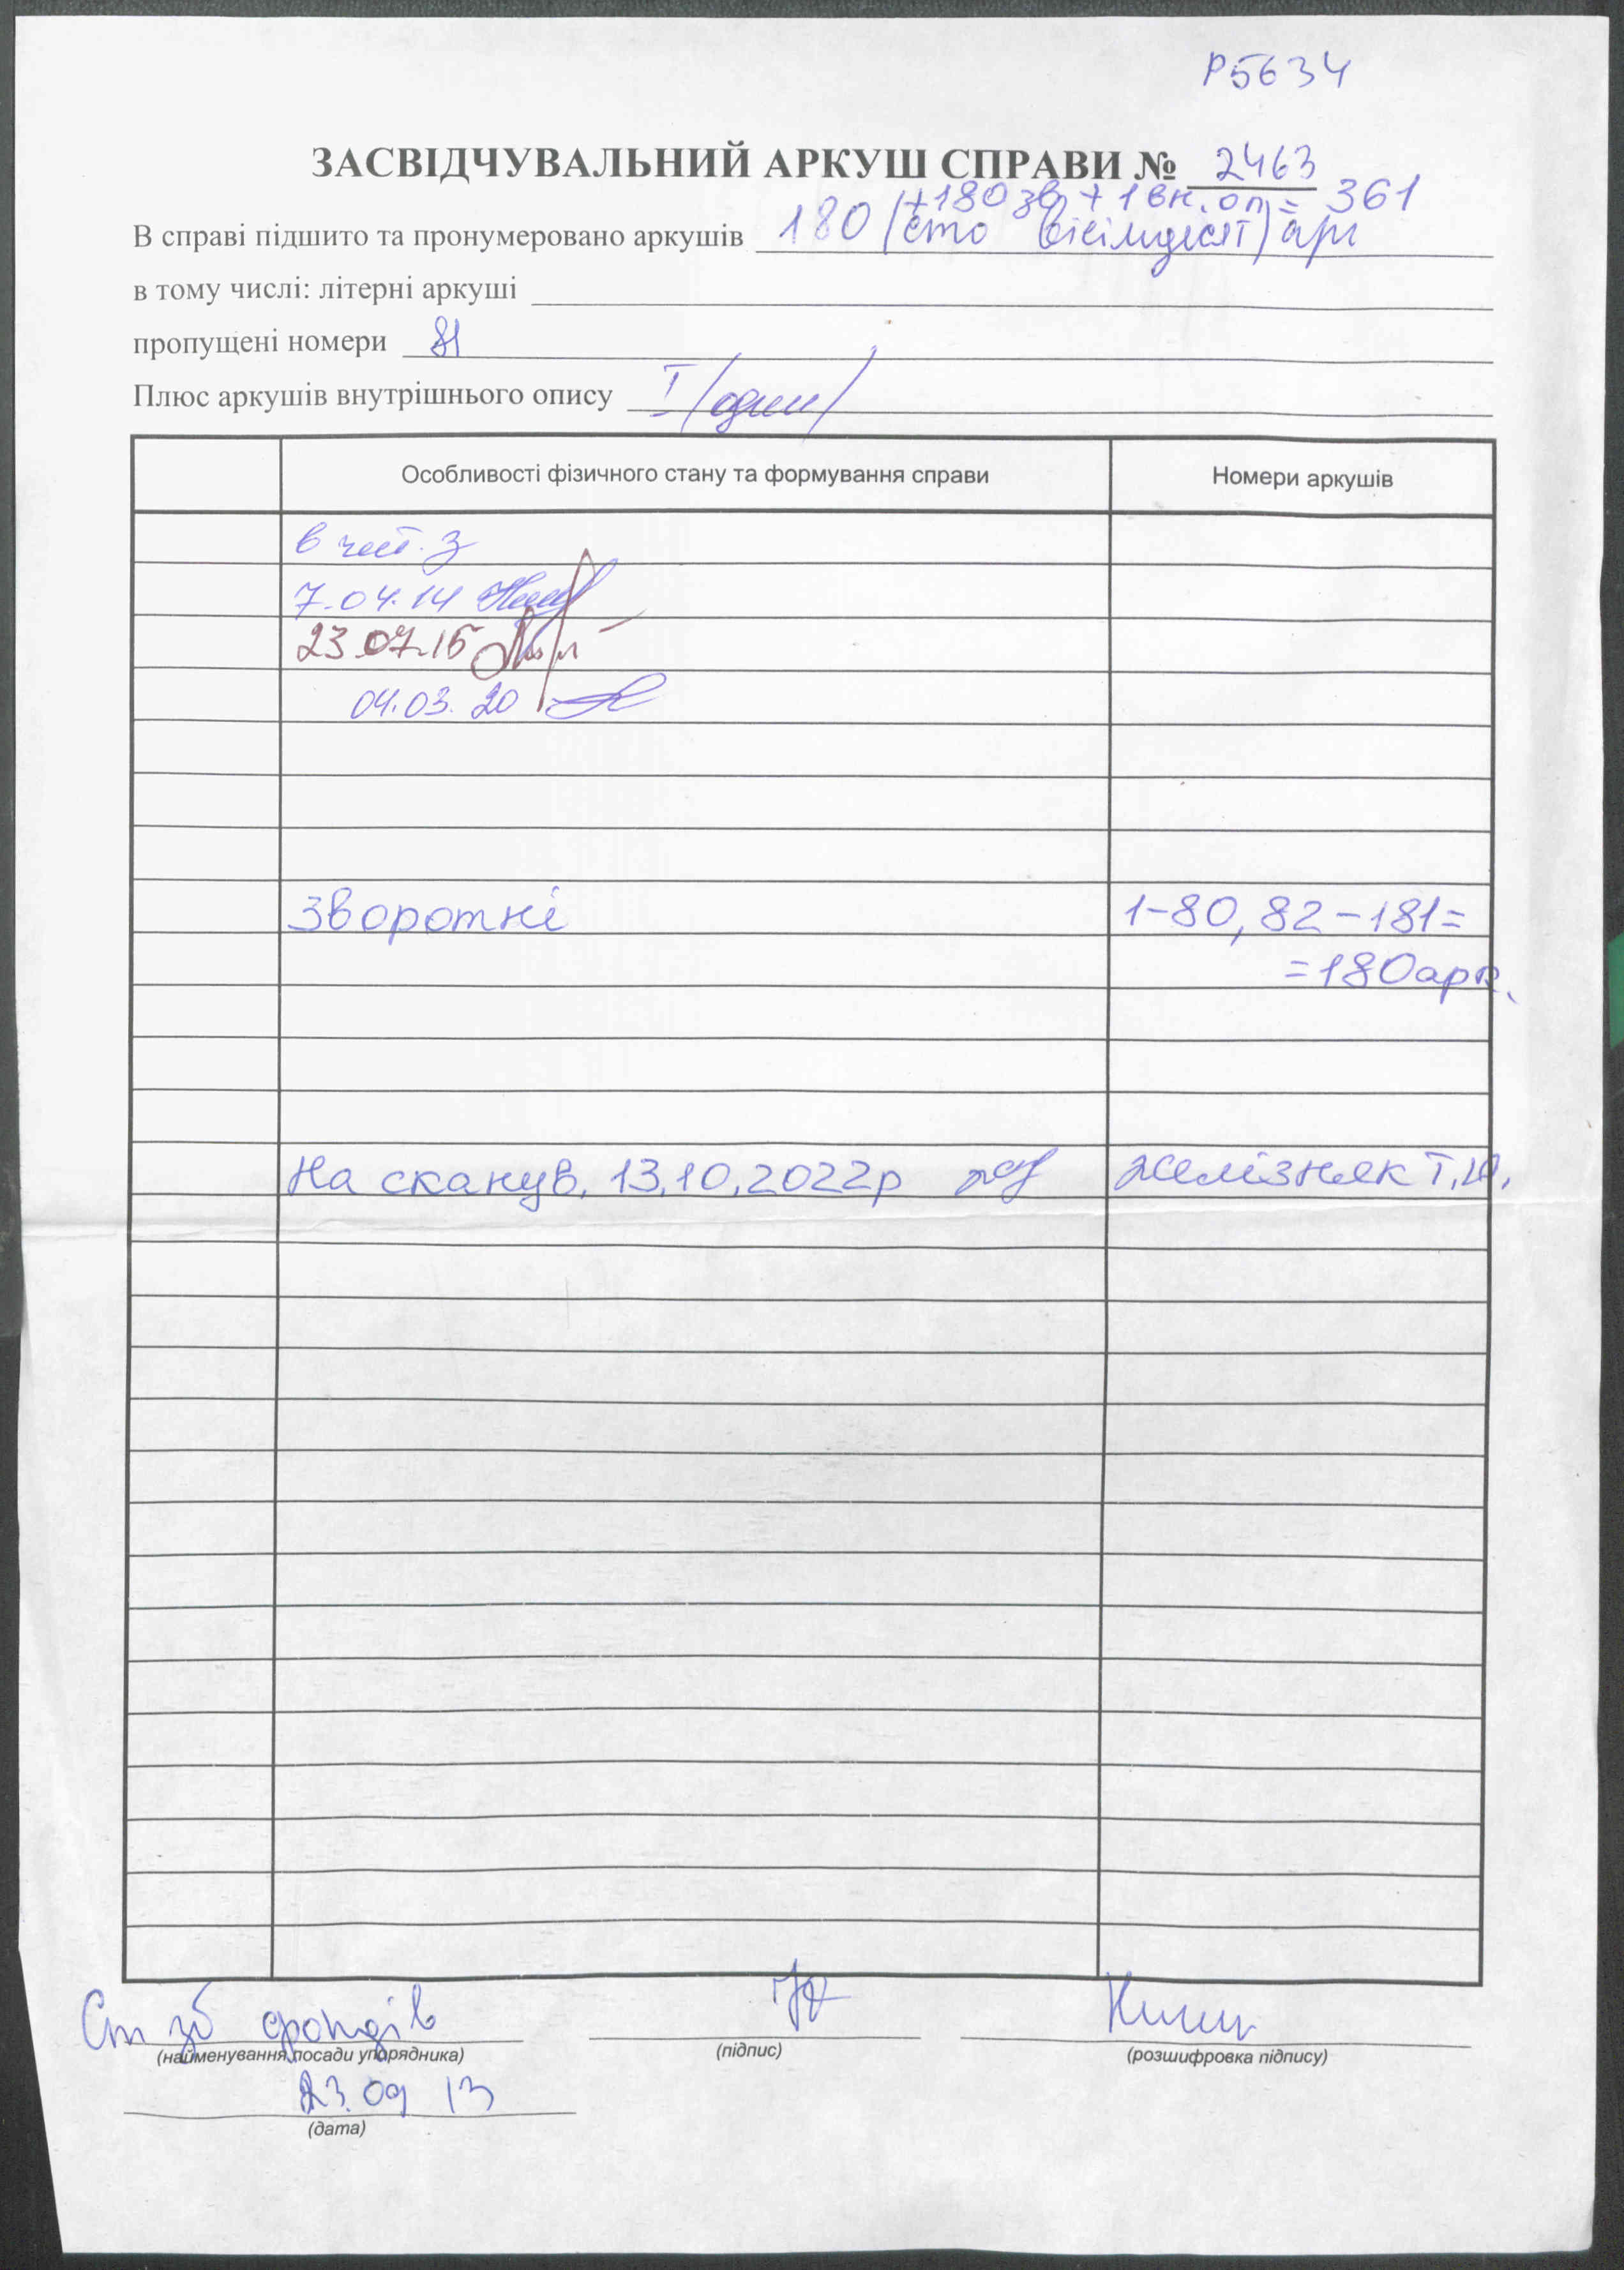 Р5634
ЗАСВІДЧУВАЛЬНИЙ АРКУШ СПРАВИ № 2463
+180 зв + 1 вн. оп = 361
В справі підшито та пронумеровано аркушів 180 (сто вісімдесят) арк
в тому числі: літерні аркуші
пропущені номери 81
Плюс аркушів внутрішнього опису I /один/
Особливості фізичного стану та формування справи Номери аркушів
в чит. з
7.04.14
23.07.15
04.03.20
зворотні 1-80, 82-181=
=180арк.
На сканув. 13.10.2022р Желізняк Т.Ю.
Ст зб фондів
(найменування посади упорядника) (підпис) (розшифровка підпису)
23.09 13
(дата)